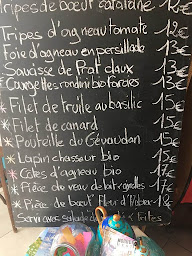 Tripes de bœuf catalane 12€
Tripes d'agneau tomate 12€
Foie d'agneau en persillade 13€
Saucisse de Prat claux 13€
Courgettes rondini bio farcies 13€
* Filet de truite au basilic 15€
* Filet de canard 15€
* Poutreille du Gévaudan 15€
* Lapin chasseur bio 15€
* Côtes d'agneau bio 17€
* Pièce de veau de lait girolles 17€
* Pièce de bœuf "Fleur d'Aubrac" 18€
Servi avec salade & frites